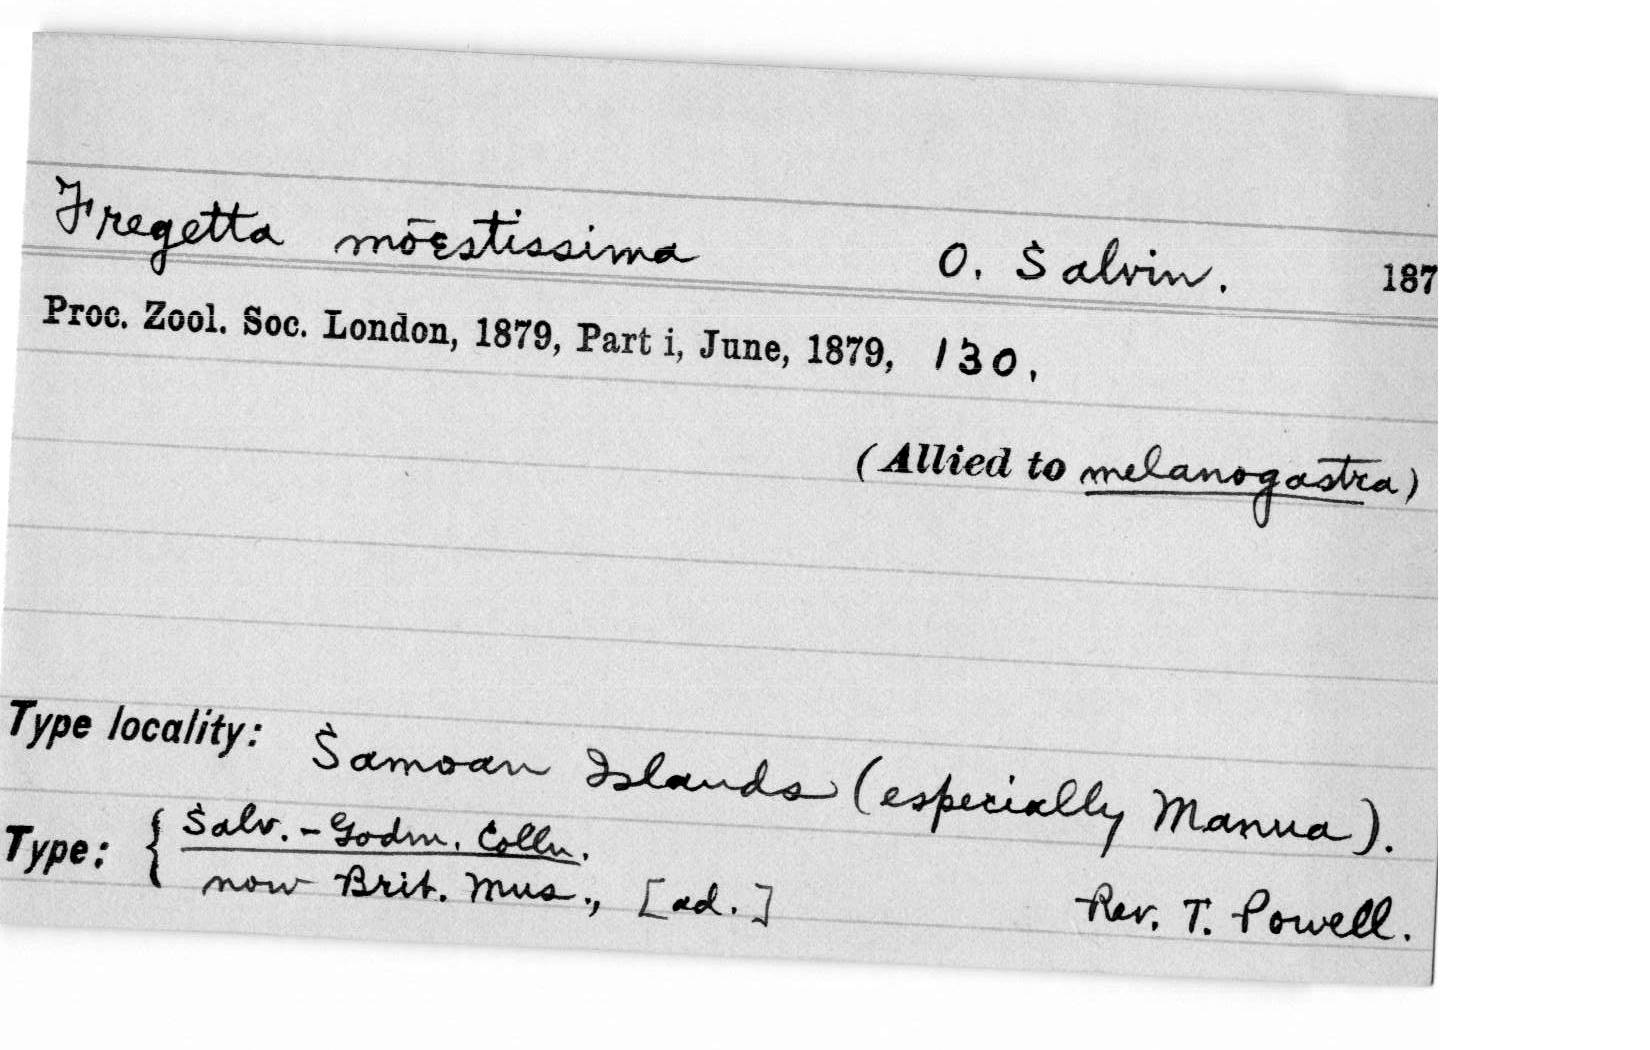 Fregetta mōestissima O. Salvin. 187
Proc. Zool. Soc. London, 1879, Part i, June, 1879, 130.
(Allied to melanogastra)
Type locality: Samoan Islands (especially Manua).
Type: { Salv.-Godm. Colln.
now Brit. Mus., [ad.] Rev. T. Powell.